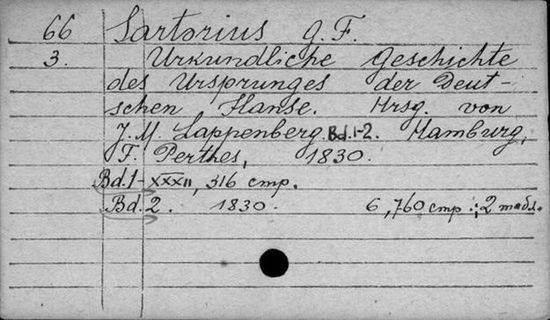 66 Sartorius G. F.
3. Urkundliche Geschichte
des Ursprunges der Deut-
schen Hanse. Hrsg. von
J. M. Lappenberg. Bd. 1-2. Hamburg,
F. Perthes, 1830.
Bd. 1 - XXXII, 316 стр.
Bd. 2. 1830. 6, 760 стр.; 2 табл.